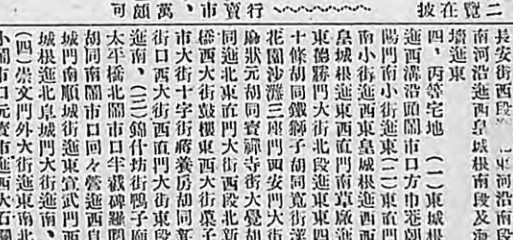 二
覽
在
披
行
賣
市
萬、
頗
可
長安街西段 北東河沿南段
南河沿迤西皇城根南段及海
墻迤東
四、丙等宅地 (一)東城根
迤西溝沿頭鬧市口方巾巷朝
陽門南小街迤東(二)東直門
南小街迤西東皇城根迤西西
皇城根迤東西直門南草廠迤
東德勝門大街北段迤東東四
十條胡同鐵獅子胡同寬街洋
花園沙灘三座門西安門大街
麻狀元胡同寶禪寺街大覺胡
同迤北東直門大街西段北新
橋西大街鼓樓東西大街菓子
市大街十字街蔣養房胡同新
街口西大街西直門大街東段
迤南、(三)錦什坊街鴨子廟
太平橋北鬧市口半截碑羅圈
胡同南鬧市口回々營迤西皇
城門南順城街迤東宣武門西
城根迤北阜城門大街迤南、
(四)崇文門外大街迤東南北
小鬧市口元寶市迤西大石